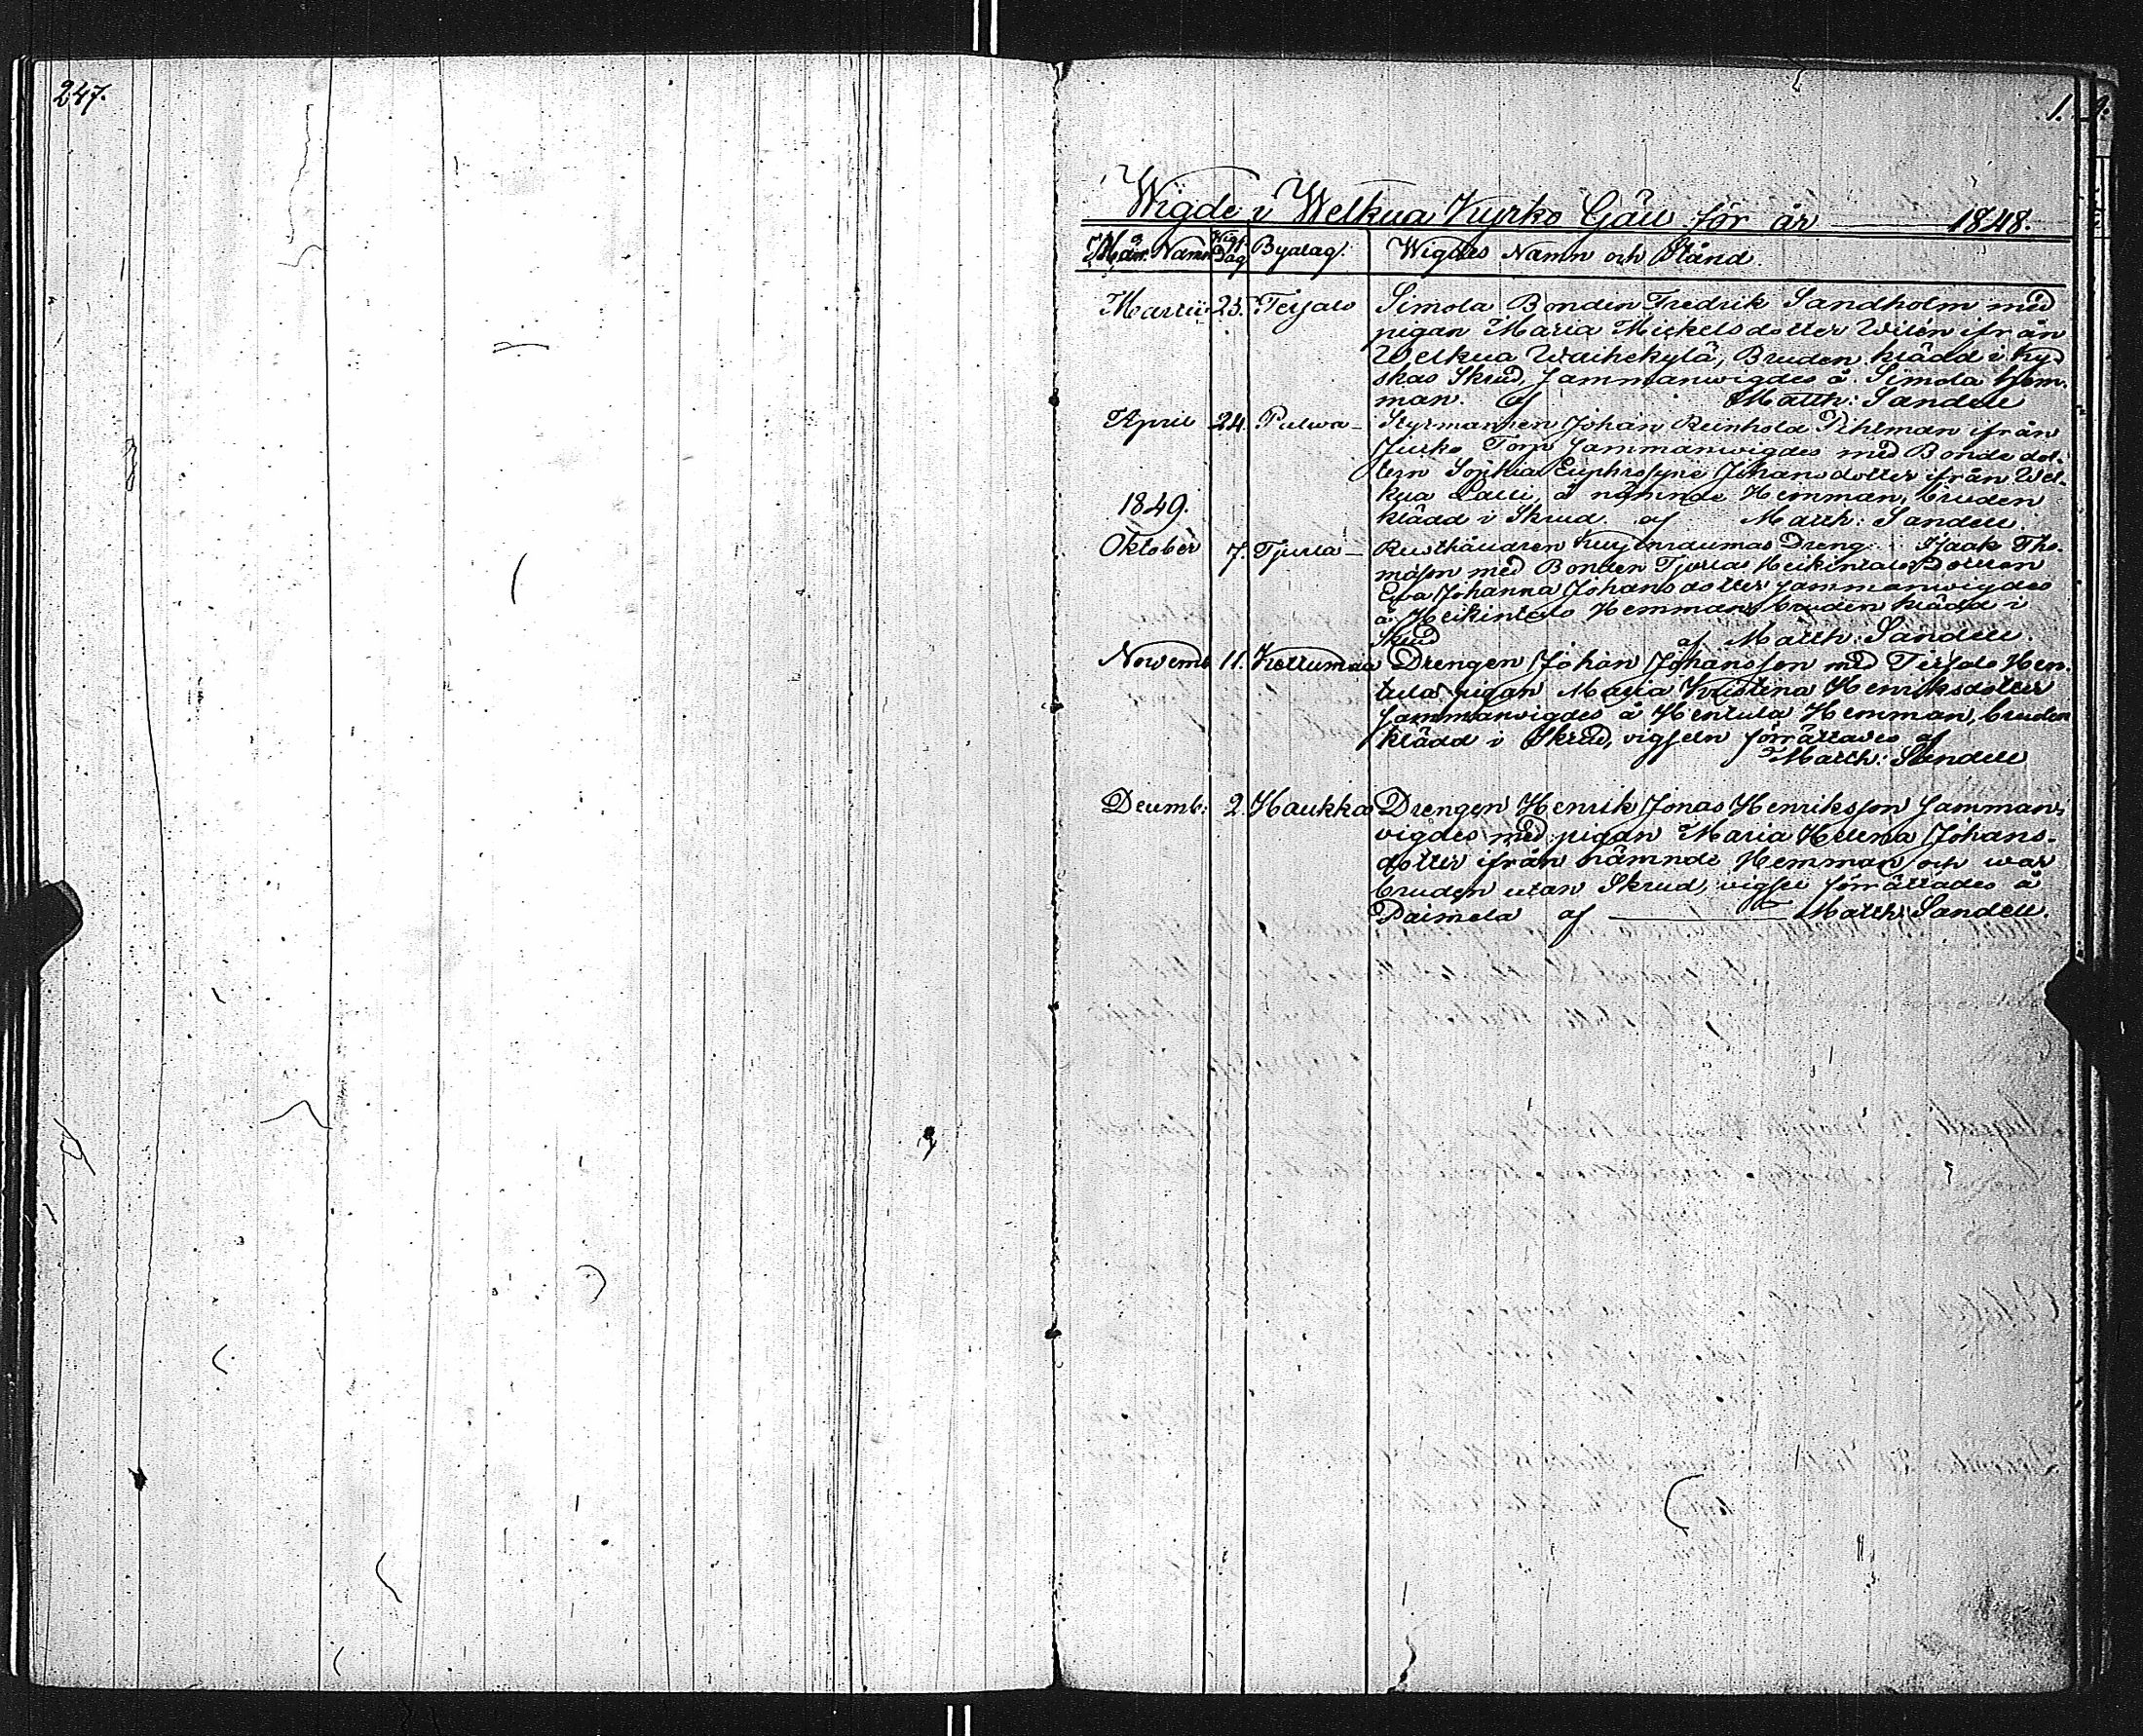 247.
1.
Wigde i Welkua Kyrko Gäll för år 1848.
Mån. Namn Wigs. Dag Byalag. Wigdes Namn och Stånd.
Martii 25. Teisalo Simola Bonden Fredrik Sandholm med
pigan Maria Mickelsdotter Willen ifrån
Welkua Waihekylä, Bruden klädd i kyr-
skas Skrud, sammanwigdes å Simola hem-
man. af Matth: Sandell
April 24. Palwa Styrmannen Johan Reinhold Pihlman ifrån
Torp sammanwigdes med Bonde dot-
tern Sophia Euphrosyne Johansdotter ifrån Wel-
kua å nämnde Hemman, bruden
1849. klädd i Skrud. af Matth: Sandell.
Oktober 7. Tjurla Dreng Isaak Tho-
masson med Bonden Tjurlas Heikintalo Dottren
Ewa Johanna Johansdotter sammanwigdes
å Heikintalo Hemman, bruden klädd i
Skrud af Matth: Sandell.
Novemb 11. Kettumaa Drengen Johan Johansson med Teisalo Hen-
tula pigan Maria Kristina Henriksdotter
sammanwigdes å Hentula Hemman, bruden
klädd i Skrud, vigseln förrättades af
Matth: Sandell
Decemb: 2. Haukka Drengen Henrik Jonas Henriksson samman-
vigdes med pigan Maria Helena Johans-
dotter ifrån nämnde Hemman och war
bruden utan Skrud, vigsel förrättades å
Paimela af Matth: Sandell.